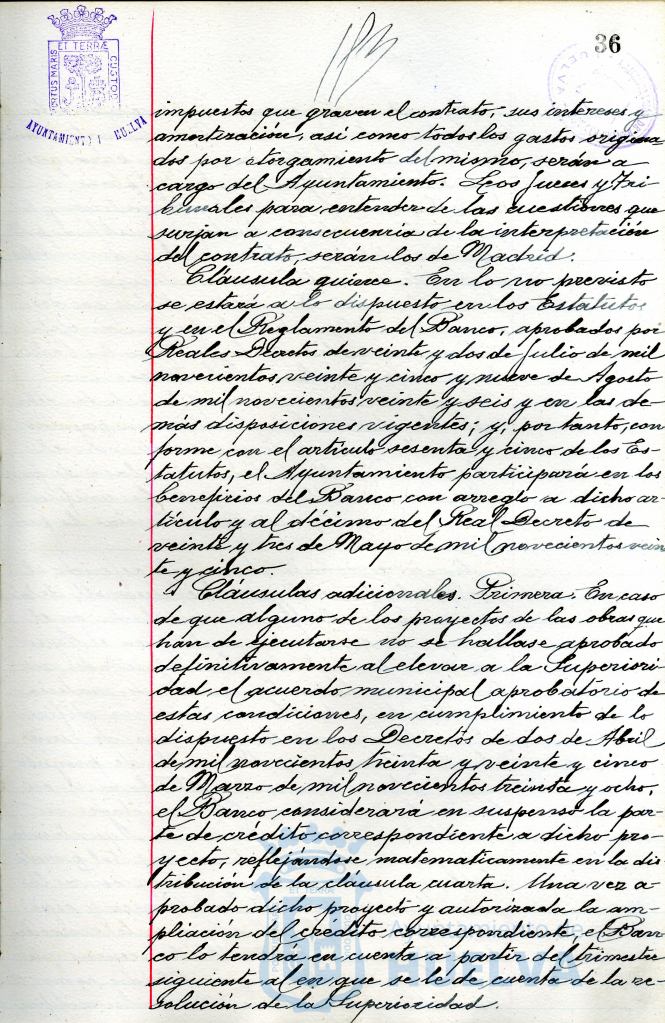 36
ET TERRÆ
AYUNTAMIENTO HUELVA
impuestos que graven el contrato, sus intereses y
amortización, así como todos los gastos origina
dos por otorgamiento del mismo, serán a
cargo del Ayuntamiento. Los Jueces y Tri-
bunales para entender de las cuestiones que
surjan a consecuencia de la interpretación
del contrato, serán los de Madrid.
Cláusula quince. En lo no previsto
se estará a lo dispuesto en los Estatutos
y en el Reglamento del Banco, aprobados por
Reales Decretos de veinte y dos de Julio de mil
novecientos veinte y cinco y nueve de Agosto
de mil novecientos veinte y seis y en las de-
más disposiciones vigentes; y, por tanto, con
forme con el artículo sesenta y cinco de los Es-
tatutos, el Ayuntamiento participará en los
beneficios del Banco con arreglo a dicho ar-
tículo y al décimo del Real Decreto de
veinte y tres de Mayo de mil novecientos vein
te y cinco.
Cláusulas adicionales. Primera. En caso
de que alguno de los proyectos de las obras que
han de ejecutarse no se hallase aprobado
definitivamente al elevar a la Superiori-
dad el acuerdo municipal aprobatorio de
estas condiciones, en cumplimiento de lo
dispuesto en los Decretos de dos de Abril
de mil novecientos treinta y veinte y cinco
de Marzo de mil novecientos treinta y ocho,
el Banco considerará en suspenso la par-
te de crédito correspondiente a dicho pro-
yecto, reflejándose matematicamente en la dis
tribución de la cláusula cuarta. Una vez a-
probado dicho proyecto y autorizada la am-
pliación del credito correspondiente, el Ban-
co lo tendrá en cuenta a partir del trimestre
siguiente al en que se le de cuenta de la re-
solución de la Superioridad.
HUELVA